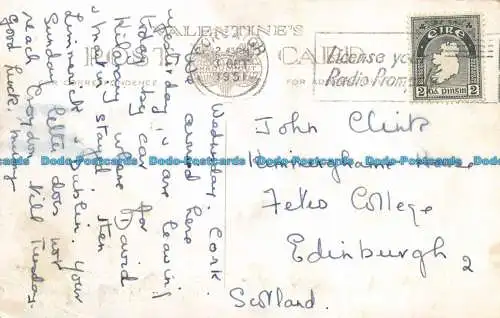 VALENTINE'S
POST CARD
FOR CORRESPONDENCE
FOR
CORCAIGH
3 OCT
1951
License your
Radio Promptly
ÉIRE
2 2
Wednesday. Cork.
We arrived here
yesterday are leaving
today by car for
Killarney where David
& stayed then
Limerick & Dublin. Your
Sunday letter does not
reach Croydon till Tuesday.
Good luck. Mummy
John Clink
House
Fettes College
Edinburgh 2
Scotland.
Dodo-Postcards Dodo-Postcards Dodo-Postcards Dodo-Postcards
Dodo-Postcards Dodo-Postcards Dodo-Postcards Dodo-Postcards